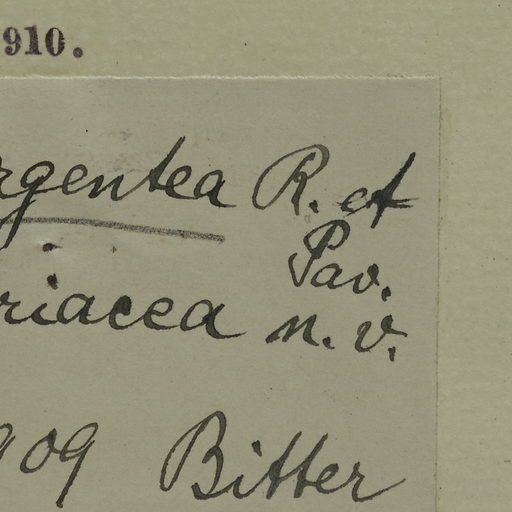 910.
rgentea R. et
Pav.
riacea n. v.
909 Bitter